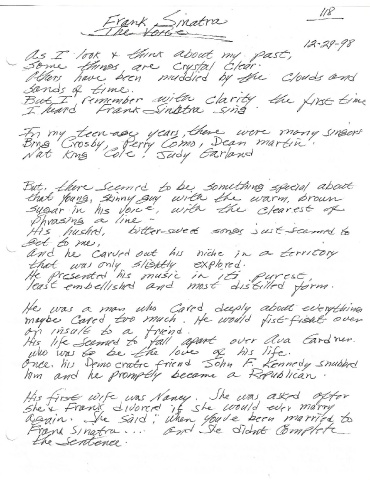 118
Frank Sinatra
The Voice
12-29-98
As I look & think about my past,
Some things, are Crystal Clear.
Others have been muddied by the Clouds and
Sands of time.
But I remember with clarity the first time
I heard Frank Sinatra sing.
In my teen-age years, there were many singers
Bing Crosby, Perry Como, Dean Martin.
Nat King Cole. Judy Garland
But, there seemed to be something special about
that young, skinny guy with the warm, brown
sugar in his voice, with the clearest of
phrasing a line -
His hushed, bitter-sweet songs just seemed to
get to me,
and he carved out his niche in a territory
that was only slightly explored.
He presented his music in its purest,
least embellished and most distilled form.
He was a man who cared deeply about everything
maybe cared too much. He would fist-fight over
an insult to a friend.
His life seemed to fall apart over Ava Gardner.
who was to be the love of his life.
Once, his Democratic friend John F. Kennedy snubbed
him and he promptly became a Republican.
His first wife was Nancy. She was asked after
she & Frank divorced if she would ever marry
again. She said; when you've been married to
Frank Sinatra... and she didn't complete
the sentence.